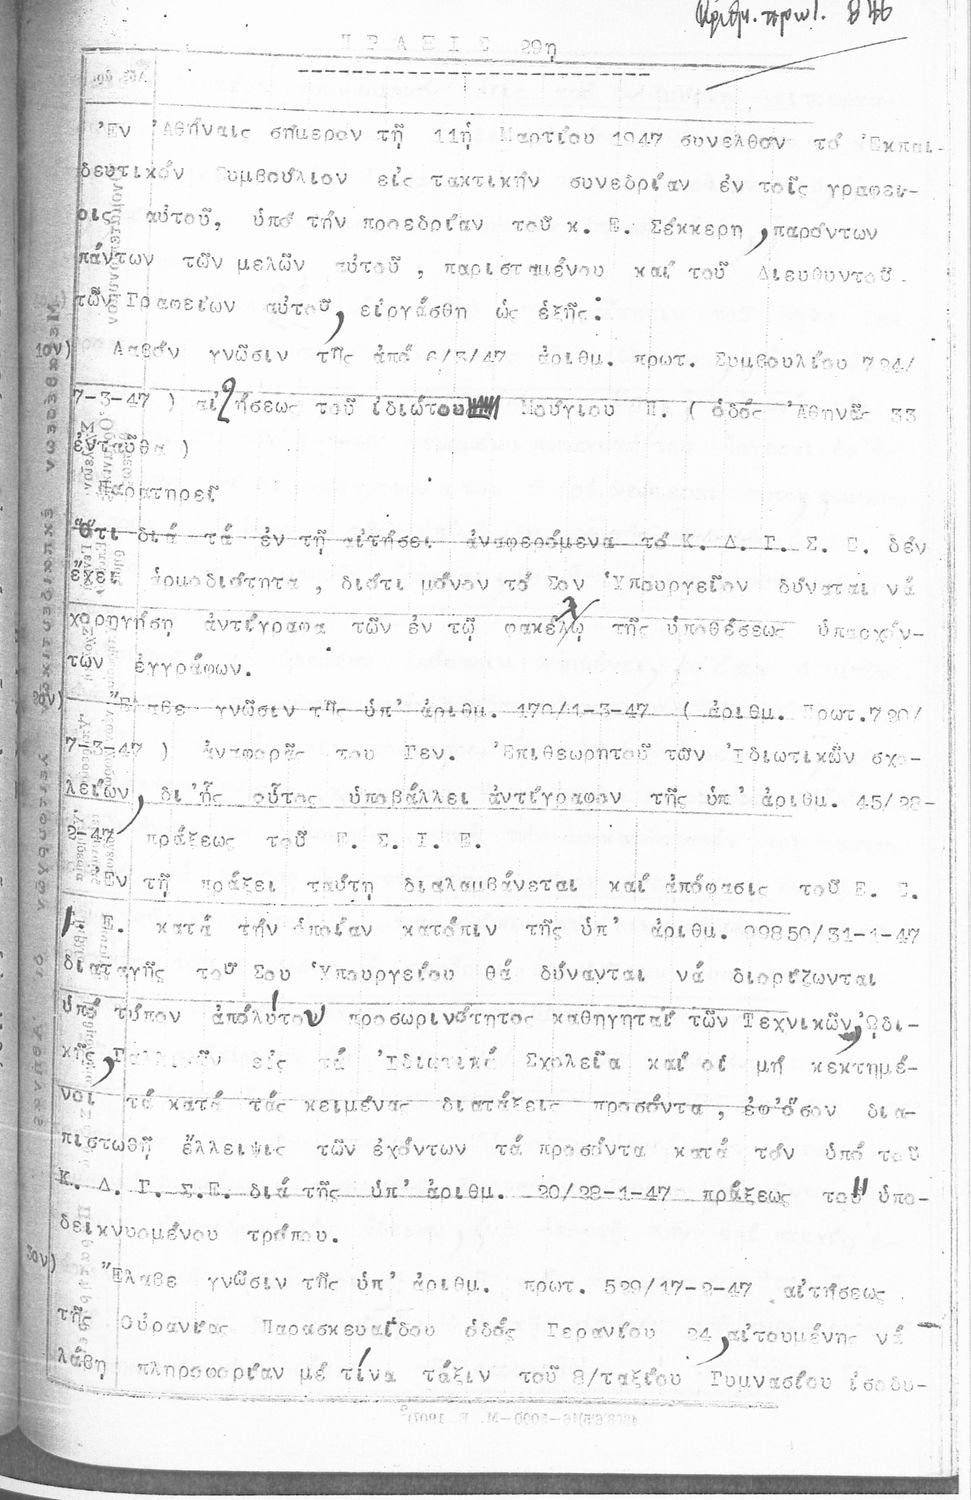 Αριθμ. πρωτ. 846
ΠΡΑΞΙΣ 29η
Ἐν Ἀθήναις σήμερον τῇ 11ῃ Μαρτίου 1947 συνελθόν τό Ἐκπαι-
δευτικόν Συμβούλιον εἰς τακτικήν συνεδρίαν ἐν τοῖς γραφεί-
οις αὐτοῦ, ὑπό τήν προεδρίαν τοῦ κ. Ε. Σέκκερη, παρόντων
πάντων τῶν μελῶν αὐτοῦ, παρισταμένου καί τοῦ Διευθυντοῦ
τῶν Γραφείων αὐτοῦ, εἰργάσθη ὡς ἑξῆς:
1ον) Λαβόν γνῶσιν τῆς ἀπό 6/3/47 ἀριθμ. πρωτ. Συμβουλίου 724/
7-3-47 ) αἰτήσεως τοῦ ἰδιώτου Μούγιου Π. ( ὁδός Ἀθηνᾶς 33
ἐνταῦθα )
Παρατηρεῖ
Ὅτι διά τά ἐν τῇ αἰτήσει ἀναφερόμενα τό Κ. Δ. Γ. Σ. Ε. δέν
ἔχει ἁρμοδιότητα, διότι μόνον τό Σον Ὑπουργεῖον δύναται νά
χορηγήσῃ ἀντίγραφα τῶν ἐν τῷ φακέλῳ τῆς ὑποθέσεως ὑπαρχόν-
των ἐγγράφων.
2ον) Ἔλαβε γνῶσιν τῆς ὑπ' ἀριθμ. 170/1-3-47 ( ἀριθμ. Πρωτ.720/
7-3-47 ) ἀναφορᾶς του Γεν. Ἐπιθεωρητοῦ τῶν Ἰδιωτικῶν σχο-
λείων, δι' ἧς οὗτος ὑποβάλλει ἀντίγραφον τῆς ὑπ' ἀριθμ. 45/28-
2-47 πράξεως τοῦ Ε. Σ. Ι. Ε.
Ἐν τῇ πράξει ταύτῃ διαλαμβάνεται καί ἀπόφασις τοῦ Ε. Σ.
Ι. Ε. κατά τήν ὁποίαν κατόπιν τῆς ὑπ' ἀριθμ. 99850/31-1-47
διαταγῆς τοῦ Σου Ὑπουργείου θά δύνανται νά διορίζωνται
ὑπό τύπον ἀπολύτου προσωρινότητος καθηγηταί τῶν Τεχνικῶν, Ὠδι-
κῆς, Γαλλικῶν εἰς τά Ἰδιωτικά Σχολεῖα καί οἱ μή κεκτημέ-
νοι τά κατά τάς κειμένας διατάξεις προσόντα, ἐφ' ὅσον δια-
πιστωθῇ ἔλλειψις τῶν ἐχόντων τά προσόντα κατά τόν ὑπό τοῦ
Κ. Δ. Γ. Σ.Ε. διά τῆς ὑπ' ἀριθμ. 20/28-1-47 πράξεως του ὑπο-
δεικνυομένου τρόπου.
3ον) Ἔλαβε γνῶσιν τῆς ὑπ' ἀριθμ. πρωτ. 529/17-2-47 αἰτήσεως
τῆς Οὐρανίας Παρασκευαΐδου ὁδός Γερανίου 24, αἰτουμένης νά
λάβῃ πληροφορίαν μέ τίνα τάξιν τοῦ 8/ταξίου Γυμνασίου ἰσοδυ-